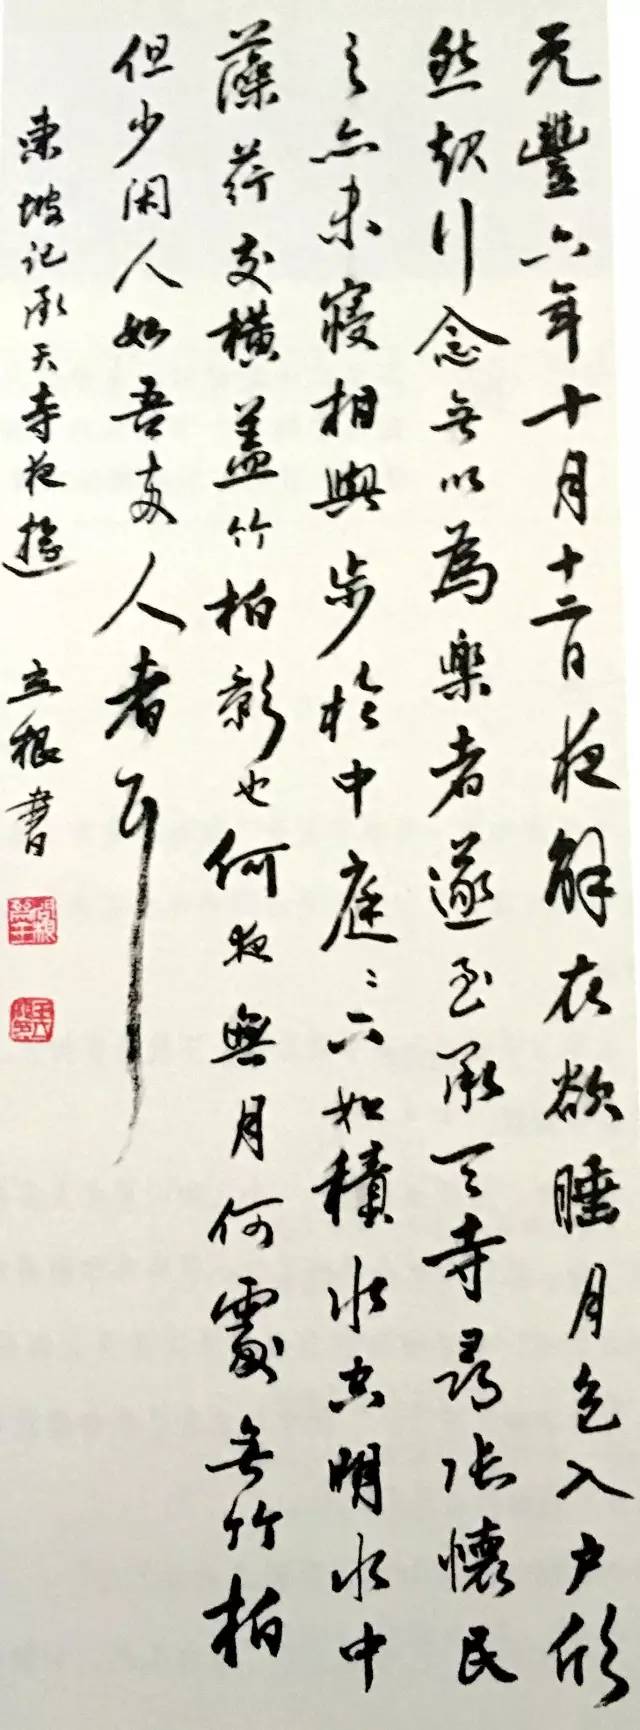 元豐六年十月十二日夜解衣欲睡月色入户欣
然起行念無以為樂者遂至承天寺尋張懷民
〻亦未寝相與步於中庭〻下如積水空明水中
藻荇交横盖竹柏影也何夜無月何處無竹柏
但少闲人如吾两人者耳
東坡记承天寺夜遊 立根書